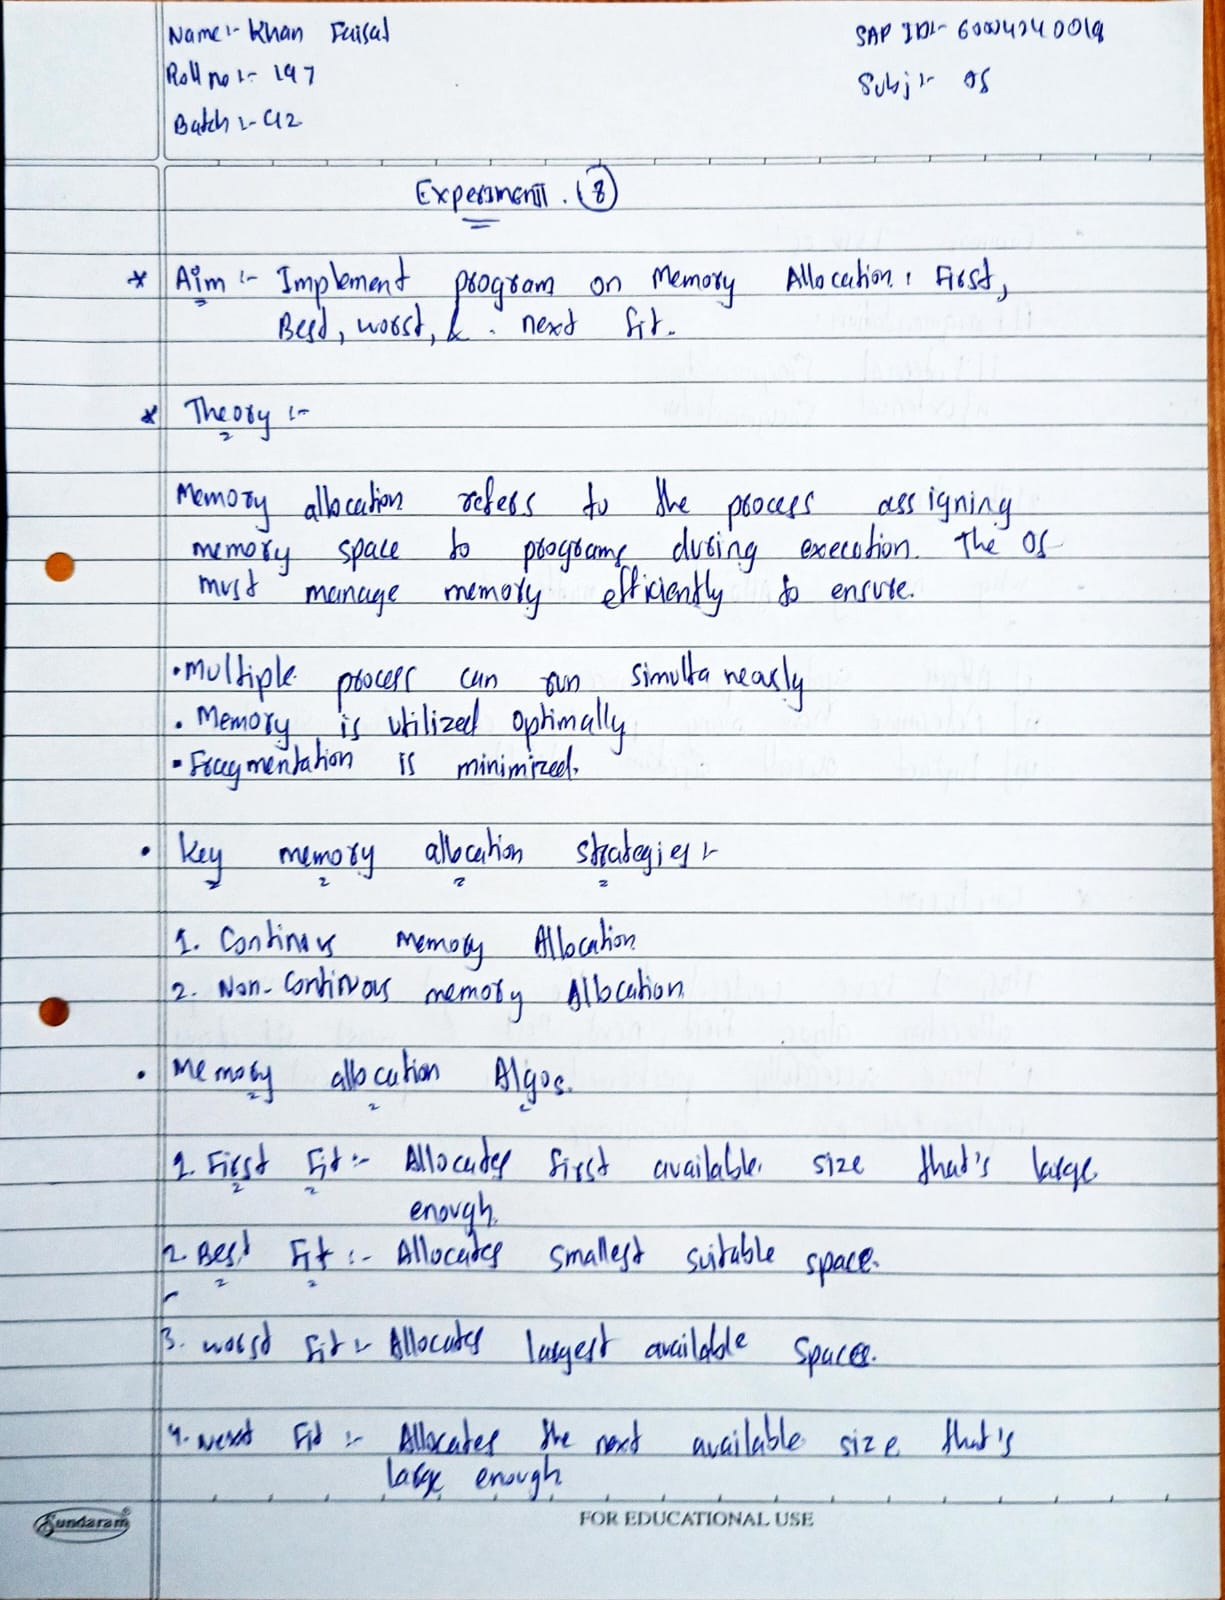 Name:- Khan Faisal
SAP ID:-
Roll no:- 197
Subj:- OS
Batch:-
Experiment. (8)
* Aim:- Implement program on Memory Allocation: First,
Best, worst, & next fit.
* Theory:-
Memory allocation refers to the process assigning
memory space to programs during execution. The OS
must manage memory efficiently to ensure.
• Multiple process can run simultaneously
• Memory is utilized optimally
• Fragmentation is minimized.
• Key memory allocation strategies:-
1. Continous Memory Allocation
2. Non-Continous memory Allocation
• Memory allocation Algos.
1. First Fit:- Allocates first available size that's large
enough.
2. Best Fit:- Allocates smallest suitable space.
3. worst fit:- Allocates largest available space.
4. Next Fit:- Allocates the next available size that's
large enough
Sundaram
FOR EDUCATIONAL USE